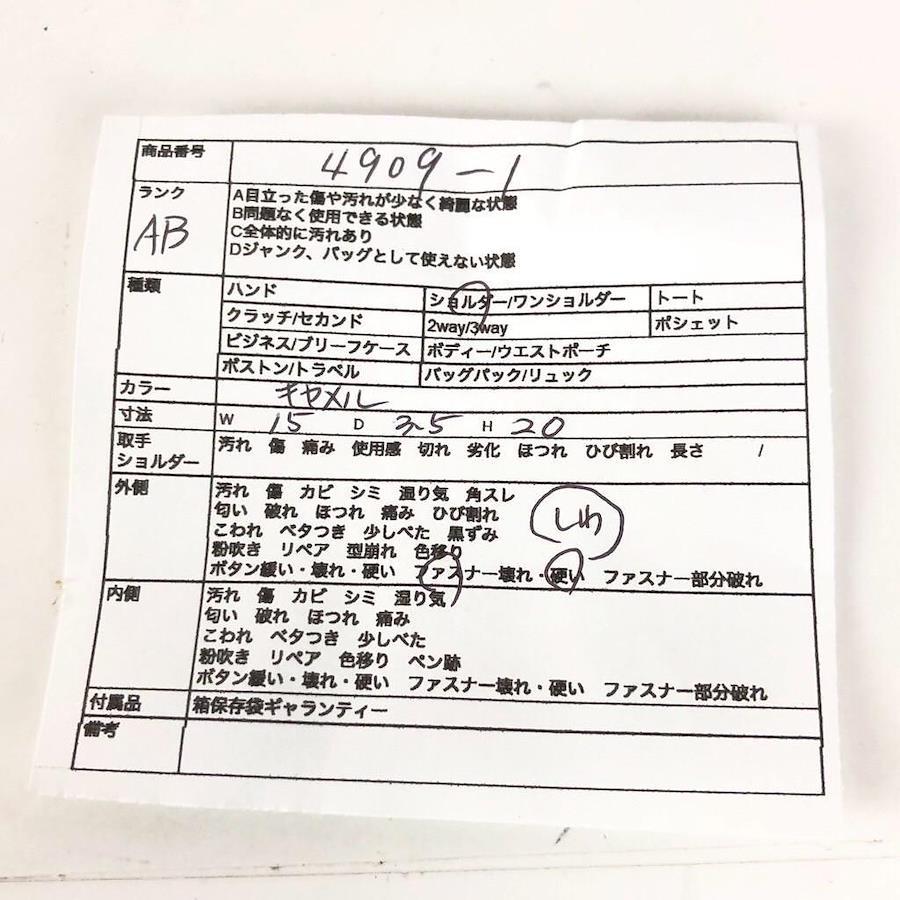 商品番号 4909-1
ランク AB
A目立った傷や汚れが少なく綺麗な状態
B問題なく使用できる状態
C全体的に汚れあり
Dジャンク、バッグとして使えない状態
種類 ハンド ショルダー/ワンショルダー トート
クラッチ/セカンド 2way/3way ポシェット
ビジネス/ブリーフケース ボディー/ウエストポーチ
ボストン/トラベル バッグパック/リュック
カラー キャメル
寸法 W 15 D 3.5 H 20
取手 ショルダー 汚れ 傷 痛み 使用感 切れ 劣化 ほつれ ひび割れ 長さ /
外側 汚れ 傷 カビ シミ 湿り気 角スレ
匂い 破れ ほつれ 痛み ひび割れ しわ
こわれ ベタつき 少しべた 黒ずみ
粉吹き リペア 型崩れ 色移り
ボタン緩い・壊れ・硬い ファスナー壊れ・硬い ファスナー部分破れ
内側 汚れ 傷 カビ シミ 湿り気
匂い 破れ ほつれ 痛み
こわれ ベタつき 少しべた
粉吹き リペア 色移り ペン跡
ボタン緩い・壊れ・硬い ファスナー壊れ・硬い ファスナー部分破れ
付属品 箱保存袋ギャランティー
備考